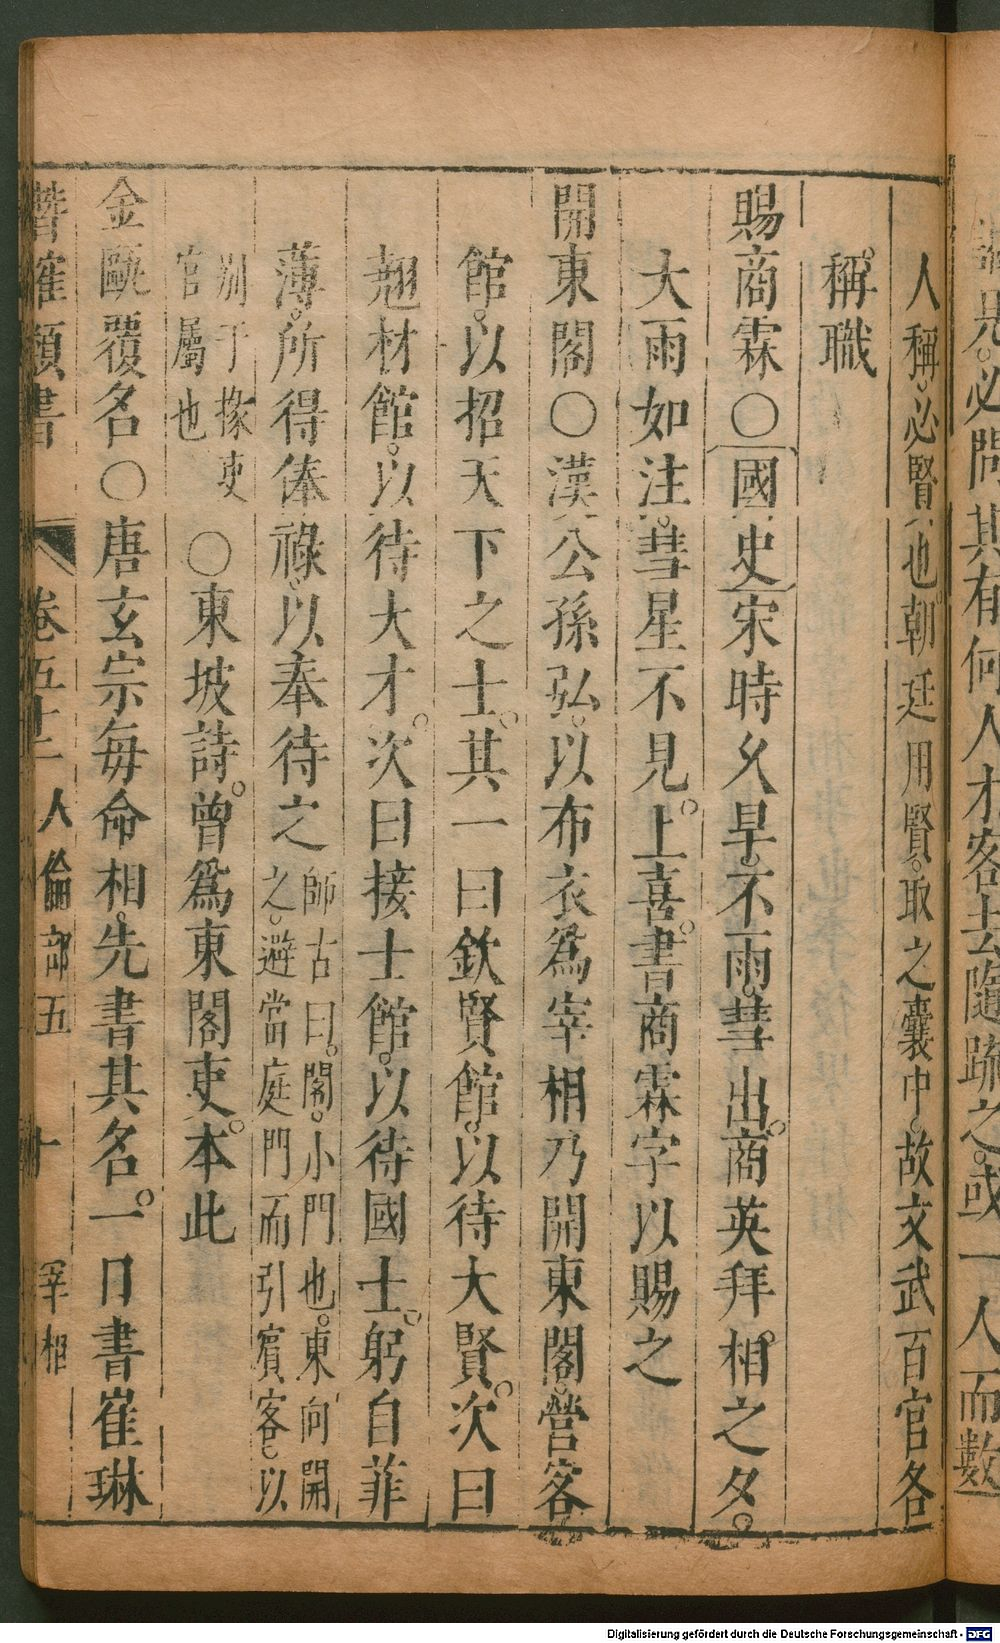 謁見必問其有何人才客去隨疏之或一人而數
人稱必賢也朝廷用賢取之囊中故文武百官各
稱職
賜商霖〇國史宋時久旱不雨彗出商英拜相之夕
大雨如注彗星不見上喜書商霖字以賜之
開東閣〇漢公孫弘以布衣為宰相乃開東閣營客
館以招天下之士其一曰欽賢館以待大賢次曰
翹材館以待大才次曰接士館以待國士躬自菲
薄所得俸祿以奉待之師古曰閣小門也東向開
之避當庭門而引賓客以
別于掾吏
官屬也〇東坡詩曾爲東閣吏本此
金甌覆名〇唐玄宗每命相先書其名一日書崔琳
潛確類書 卷五十二 人倫部五 十 宰相
Digitalisierung gefördert durch die Deutsche Forschungsgemeinschaft - DFG